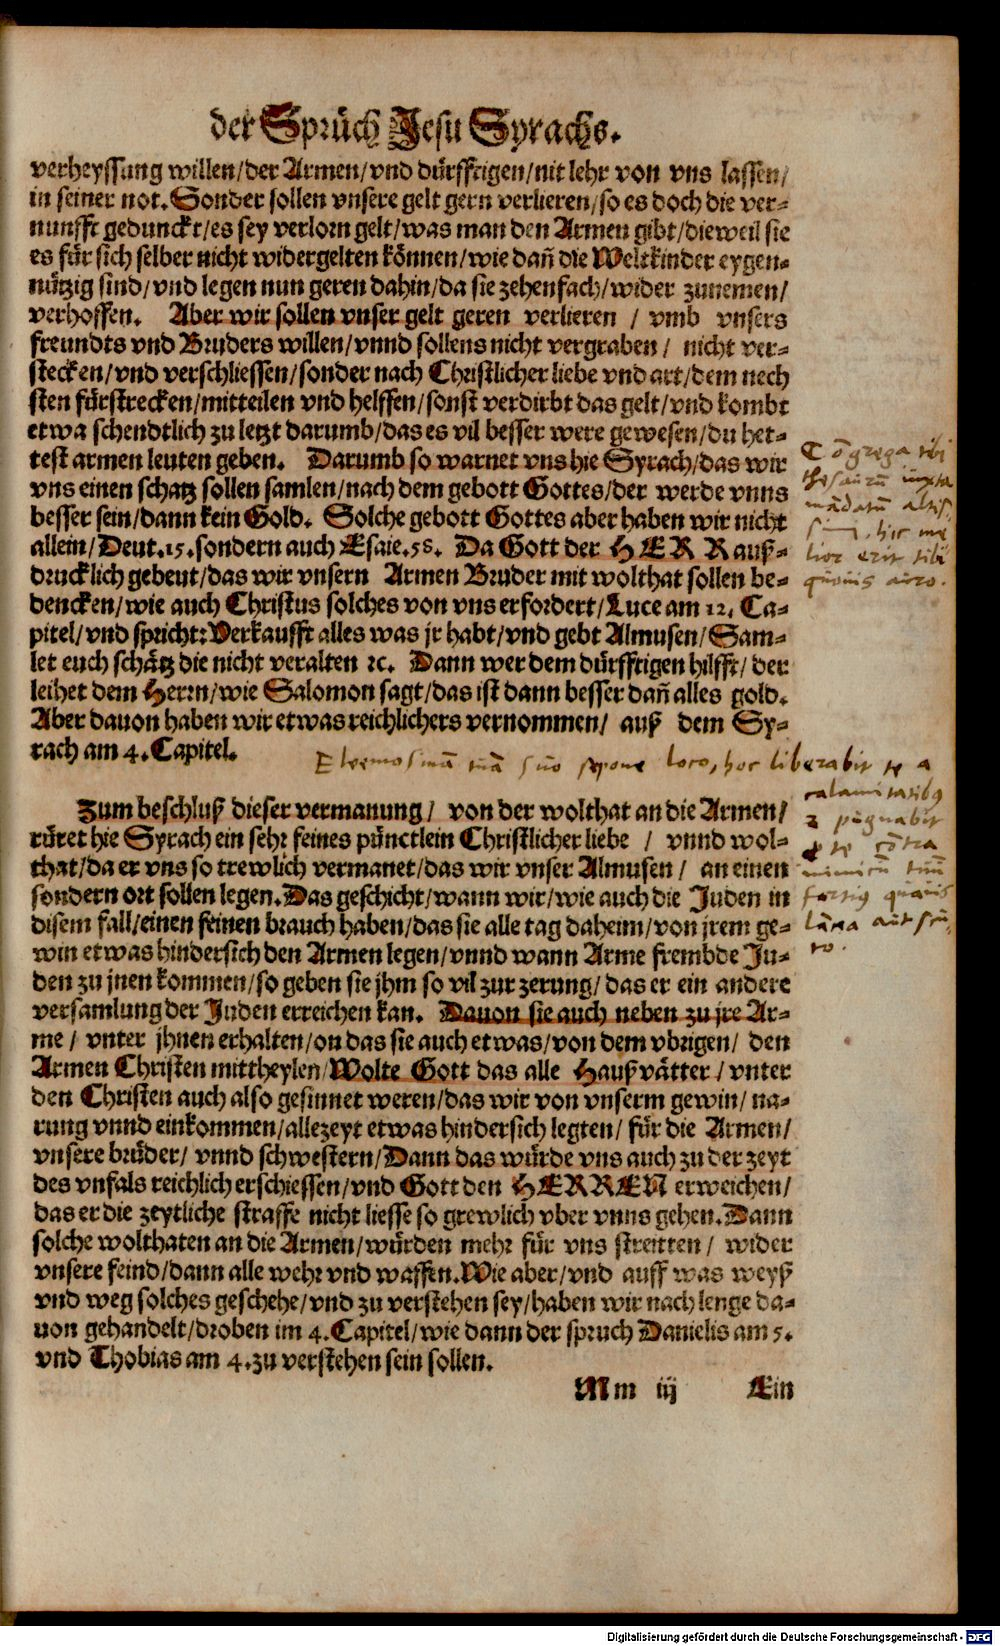 der Sprüch Jesu Syrachs.
verheyssung willen/der Armen/vnd dürfftigen/nit lehr von vns lassen/
in seiner not. Sonder sollen vnsere gelt gern verlieren/so es doch die ver-
nunfft gedunckt/es sey verlorn gelt/was man den Armen gibt/dieweil sie
es für sich selber nicht widergelten können/wie dañ die Weltkinder eygen-
nützig sind/vnd legen nun geren dahin/da sie zehenfach/wider zunemen/
verhoffen. Aber wir sollen vnser gelt geren verlieren / vmb vnsers
freundts vnd Bruders willen/vnnd sollens nicht vergraben/ nicht ver-
stecken/vnd verschliessen/sonder nach Christlicher liebe vnd art/dem nech
sten fürstrecken/mitteilen vnd helffen/sonst verdirbt das gelt/vnd kombt
etwa schendtlich zu letzt darumb/das es vil besser were gewesen/du het-
test armen leuten geben. Darumb so warnet vns hie Syrach/das wir
vns einen schatz sollen samlen/nach dem gebott Gottes/der werde vnns
besser sein/dann kein Gold. Solche gebott Gottes aber haben wir nicht
allein/Deut.15.sondern auch Esaie.58. Da Gott der HERR auß-
drucklich gebeut/das wir vnsern Armen Bruder mit wolthat sollen be-
dencken/wie auch Christus solches von vns erfordert/Luce am 12. Ca-
pitel/vnd spricht: Verkaufft alles was jr habt/vnd gebt Almusen/Sam-
let euch schätz die nicht veralten ꝛc. Dann wer dem dürfftigen hilfft/der
leihet dem Herrn/wie Salomon sagt/das ist dann besser dañ alles gold.
Aber dauon haben wir etwas reichlichers vernommen/ auß dem Sy-
rach am 4.Capitel.
Cōgrega tibi
thesaurū iuxta
mādatū altis
simi, hic me
lior erit tibi
quāuis auro.
Eleemosinā tuā suo sepone loco, hoc liberabit te a
calamitatibus
ꝛ pugnabit
te cōtra
inimicū tuū
fortius quāuis
lācea aut scu
to.
Zum beschluß dieser vermanung/ von der wolthat an die Armen/
rüret hie Syrach ein sehr feines pünctlein Christlicher liebe / vnnd wol-
that/da er vns so trewlich vermanet/das wir vnser Almusen/ an einen
sondern ort sollen legen. Das geschicht/wann wir/wie auch die Juden in
disem fall/einen feinen brauch haben/das sie alle tag daheim/von jrem ge-
win etwas hindersich den Armen legen/vnnd wann Arme frembde Ju-
den zu jnen kommen/so geben sie jhm so vil zur zerung/das er ein andere
versamlung der Juden erreichen kan. Dauon sie auch neben zu jre Ar-
me/ vnter jhnen erhalten/on das sie auch etwas/von dem vbrigen/ den
Armen Christen mittheylen/Wolte Gott das alle Haußvätter/vnter
den Christen auch also gesinnet weren/das wir von vnserm gewin/ na-
rung vnnd einkommen/allezeyt etwas hindersich legten/ für die Armen/
vnsere brüder/ vnnd schwestern/Dann das würde vns auch zu der zeyt
des vnfals reichlich erschiessen/vnd Gott den HERREN erweichen/
das er die zeytliche straffe nicht liesse so grewlich vber vnns gehen. Dann
solche wolthaten an die Armen/würden mehr für vns streitten/ wider
vnsere feind/dann alle wehr vnd waffen. Wie aber/vnd auff was weyß
vnd weg solches geschehe/vnd zu verstehen sey/haben wir nach lenge da-
uon gehandelt/droben im 4.Capitel/wie dann der spruch Danielis am 5.
vnd Thobias am 4.zu verstehen sein sollen.
Mm iij Ein
Digitalisierung gefördert durch die Deutsche Forschungsgemeinschaft - DFG